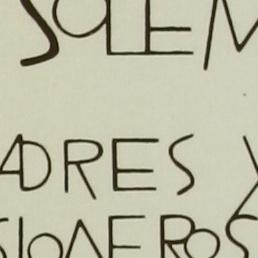 SOLEM
ADRES Y
SIONEROS